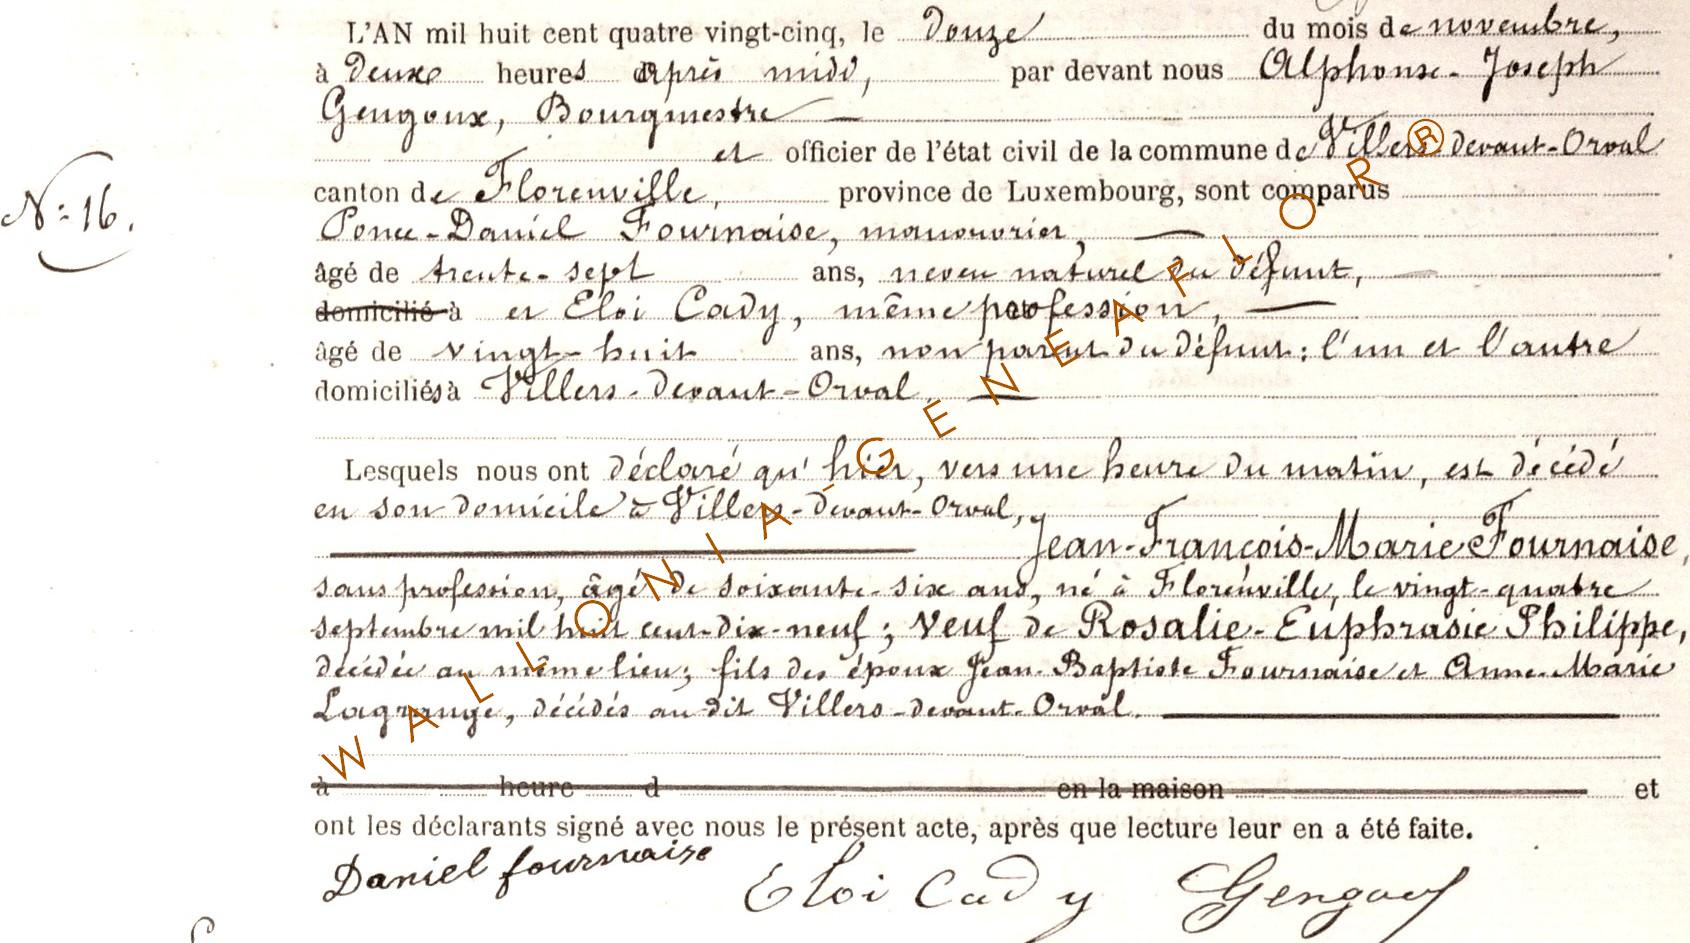 L'AN mil huit cent quatre vingt-cinq, le douze du mois de novembre,
à deux heures après midi, par devant nous Alphonse-Joseph
Gengoux, Bourgmestre —
et officier de l'état civil de la commune de Villers devant-Orval
canton de Florenville, province de Luxembourg, sont comparus
Ponce-Daniel Fournaise, manouvrier, —
âgé de trente-sept ans, neveu naturel du défunt, —
domicilié à et Eloi Cady, même profession, —
âgé de vingt-huit ans, non parent du défunt: l'un et l'autre
domiciliés à Villers-devant-Orval. —
N: 16.
Lesquels nous ont déclaré qu'hier, vers une heure du matin, est décédé
en son domicile à Villers-devant-Orval,
Jean-François-Marie Fournaise,
sans profession, âgé de soixante-six ans, né à Florenville, le vingt-quatre
septembre mil huit cent-dix-neuf; veuf de Rosalie-Euphrasie Philippe,
décédée au même lieu; fils des époux Jean-Baptiste Fournaise et Anne-Marie
Lagrange, décédés au dit Villers-devant-Orval.
à heure d en la maison et
ont les déclarants signé avec nous le présent acte, après que lecture leur en a été faite.
Daniel fournaise Eloi Cady Gengoux
WALLONIA-GENEAFLOR®